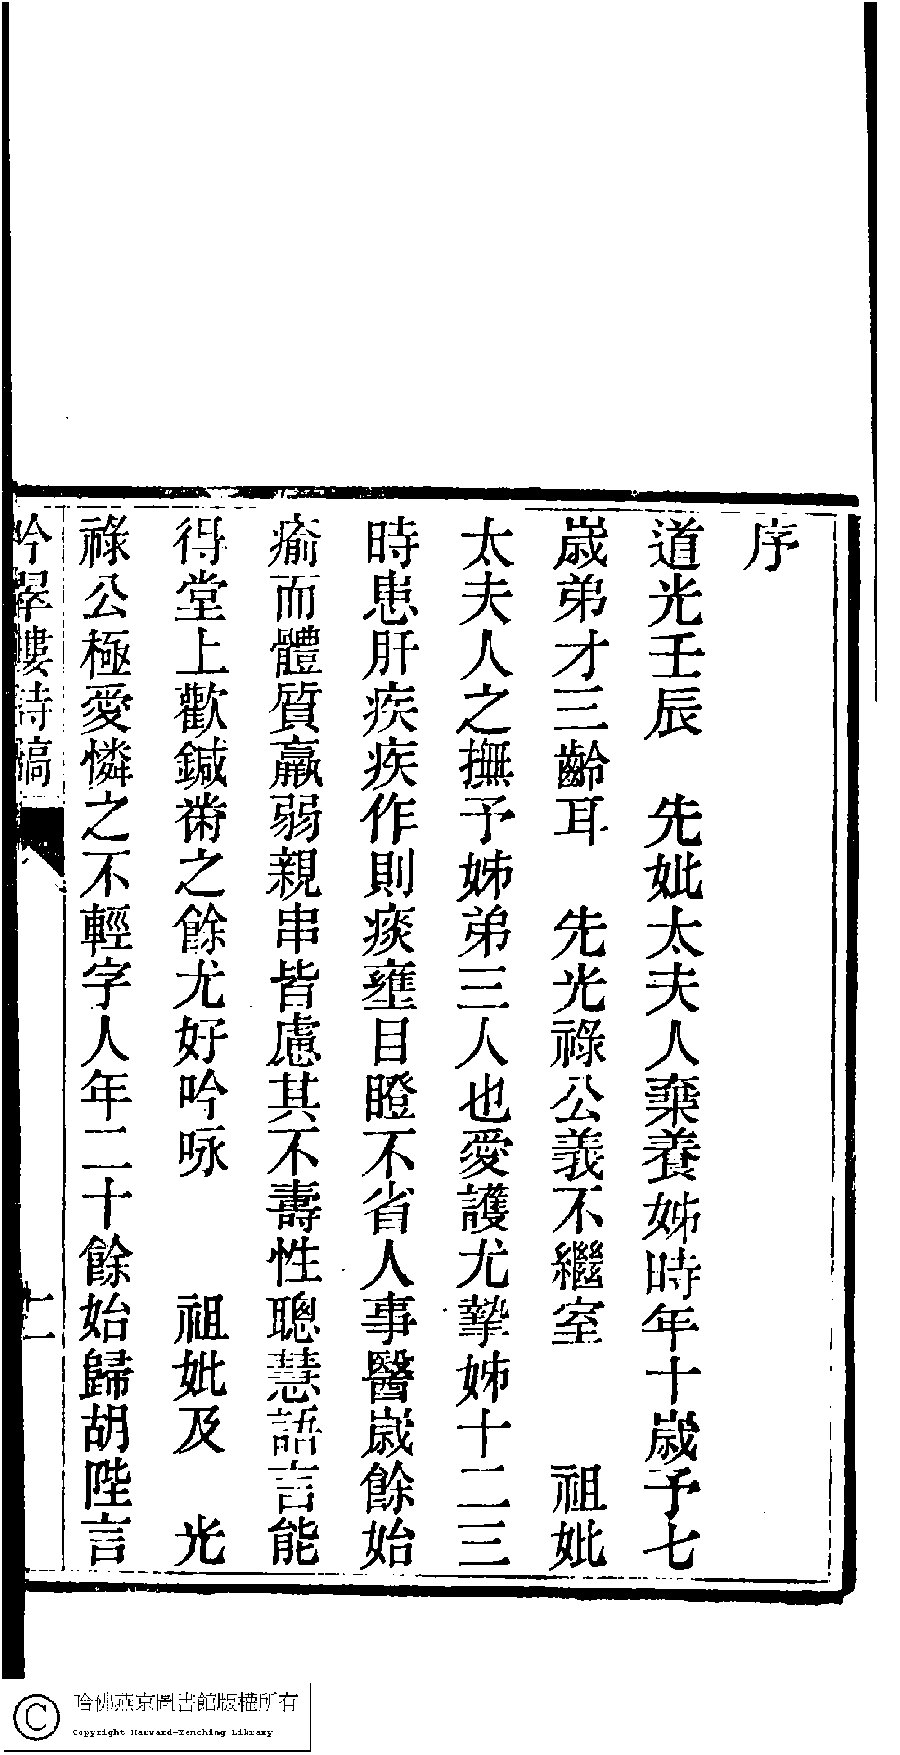 序
道光壬辰　先妣太夫人棄養姊時年十歲予七
歲弟才三齡耳　先光祿公義不繼室　祖妣
太夫人之撫予姊弟三人也愛護尤摯姊十二三
時患肝疾疾作則痰壅目瞪不省人事醫歲餘始
瘉而體質羸弱親串皆慮其不壽性聰慧語言能
得堂上歡鍼黹之餘尤好吟咏　祖妣及　光
祿公極愛憐之不輕字人年二十餘始歸胡陛言
吟翠樓詩稿
哈佛燕京圖書館版權所有
Copyright Harvard-Yenching Library